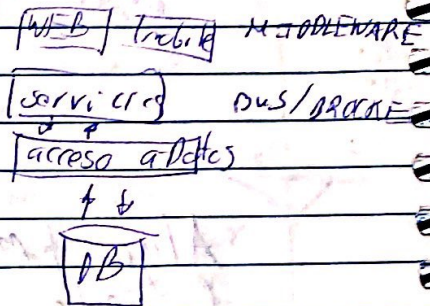 WEB MIDDLEWARE
servicios BUS/BROKE
acceso a Datos
DB